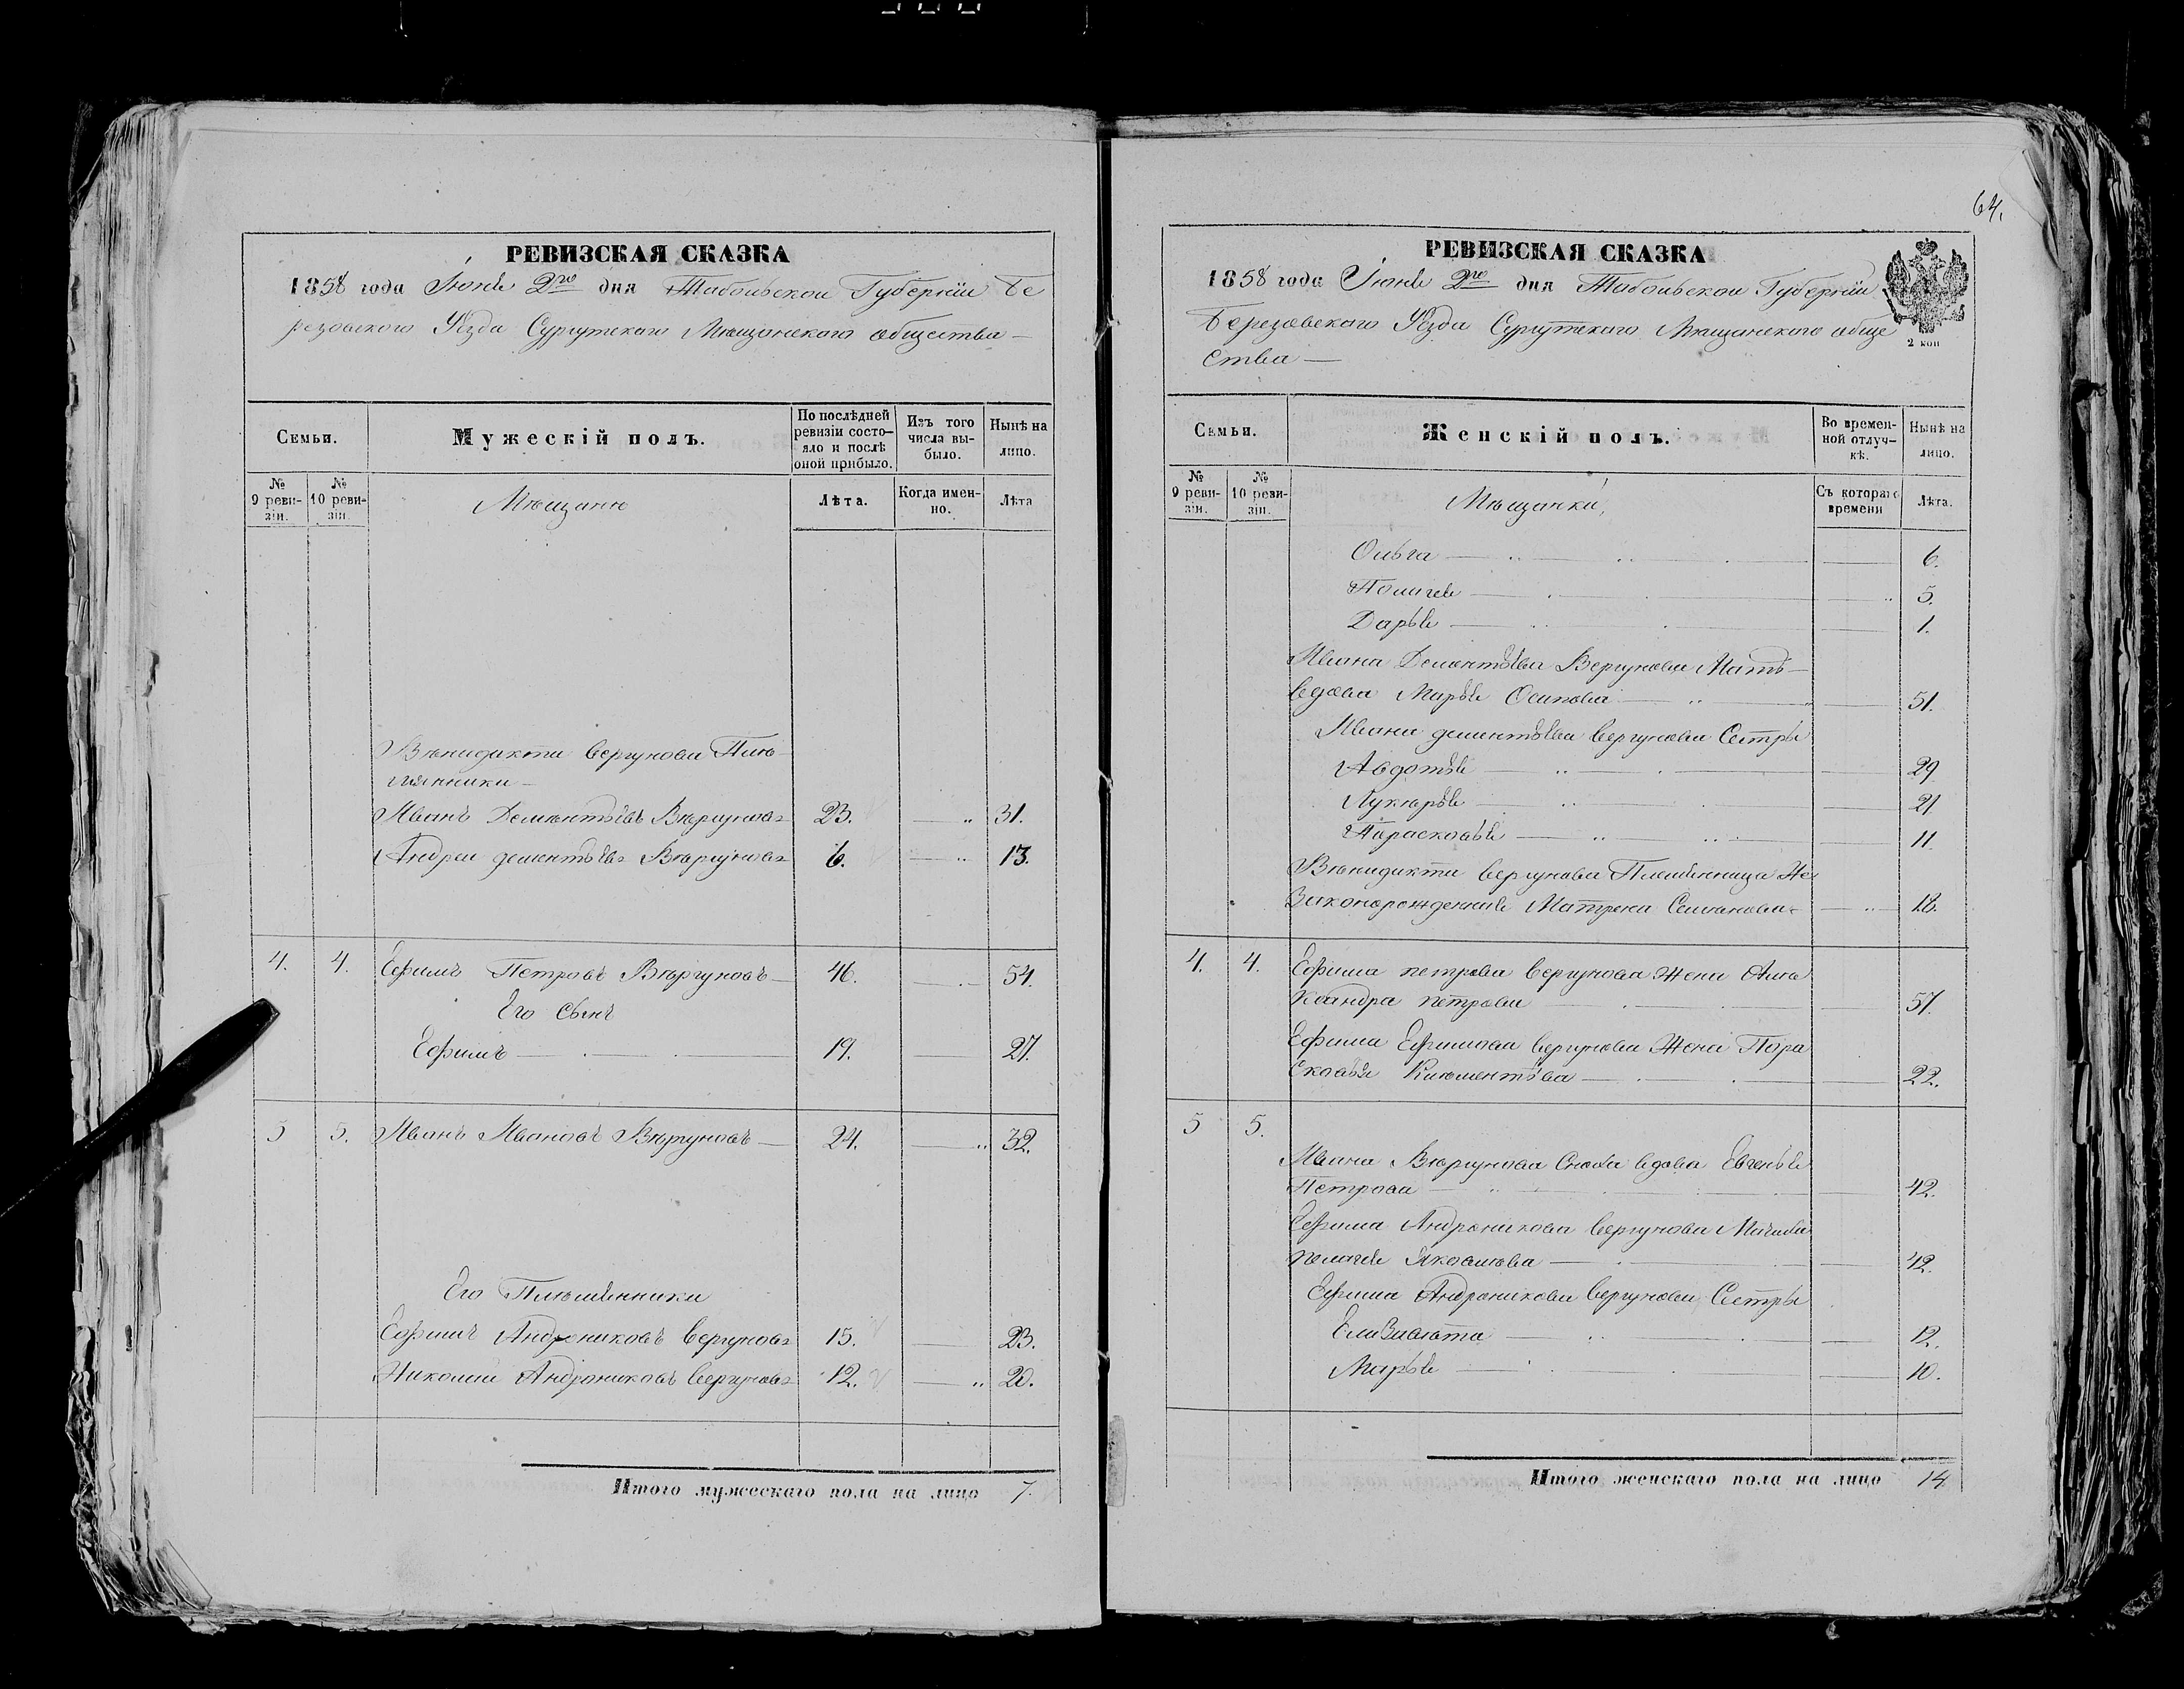 РЕВИЗСКАЯ СКАЗКА
1858 года Июня 2го дня Табольской Губернии Бе
резовского Уезда Сургутского Мещанского общества —
Семьи.
Мужескій полъ.
По послѣдней ревизіи состояло и послѣ оной прибыло.
Изъ того числа выбыло.
Нынѣ на лицо.
№ 9 ревизіи.
№ 10 ревизіи
Мещане
Лѣта.
Когда именно.
Лѣта
Венидикта Вергунова Пле
мянники —
Иванъ Дементьевъ Вергуновъ 23. — „ 31.
Андреи дементьевъ Вергуновъ 6. — „ 13.
4. 4. Ефимъ Петровъ Вергуновъ — 46. — 54.
Его Сынъ
Ефимъ — 19. — 27.
5 5. Иванъ Ивановъ Вергуновъ — 24. — „ 32.
Его Племянники
Ефимъ Андрониковъ Вергуновъ 15. — 23.
Николаи Андрониковъ Вергуновъ 12. — „ 20.
Итого мужескаго пола на лицо 7.
64.
РЕВИЗСКАЯ СКАЗКА
1858 года Июня 2го дня Табольской Губернии
Березовского Уезда Сургутского Мещанского обще
ства —
2 коп
Семьи.
Женскій полъ.
Во временной отлучкѣ.
Нынѣ на лицо.
№ 9 ревизіи.
№ 10 ревизіи.
Мещанки,
Съ котораго времени
Лѣта.
Ольга — 6.
Полагея — 5.
Дарья — 1.
Ивана Дементьева Вергунова Мать —
вдова Марья Осипова — 51.
Ивана дементьева Вергунова Сестры
Авдотья — 29
Лукерья — 21
Парасковья — 11.
Венидикта Вергунова Племянница Не
Законорожденная Матрена Семионова — „ 18.
4. 4. Ефима петрова Вергунова Жена Алек
ксандра петрова — 57.
Ефима Ефимова Вергунова Жена Пара
сковья Климентьева — 22.
5 5.
Ивана Вергунова Сноха вдова Евгенья
Петрова — 42.
Ефима Андроникова Вергунова Мачиха
пелагея Яковлева — 42.
Ефима Андроникова Вергунова Сестры
Елизавета — 12.
Марья — 10.
Итого женскаго пола на лицо 14